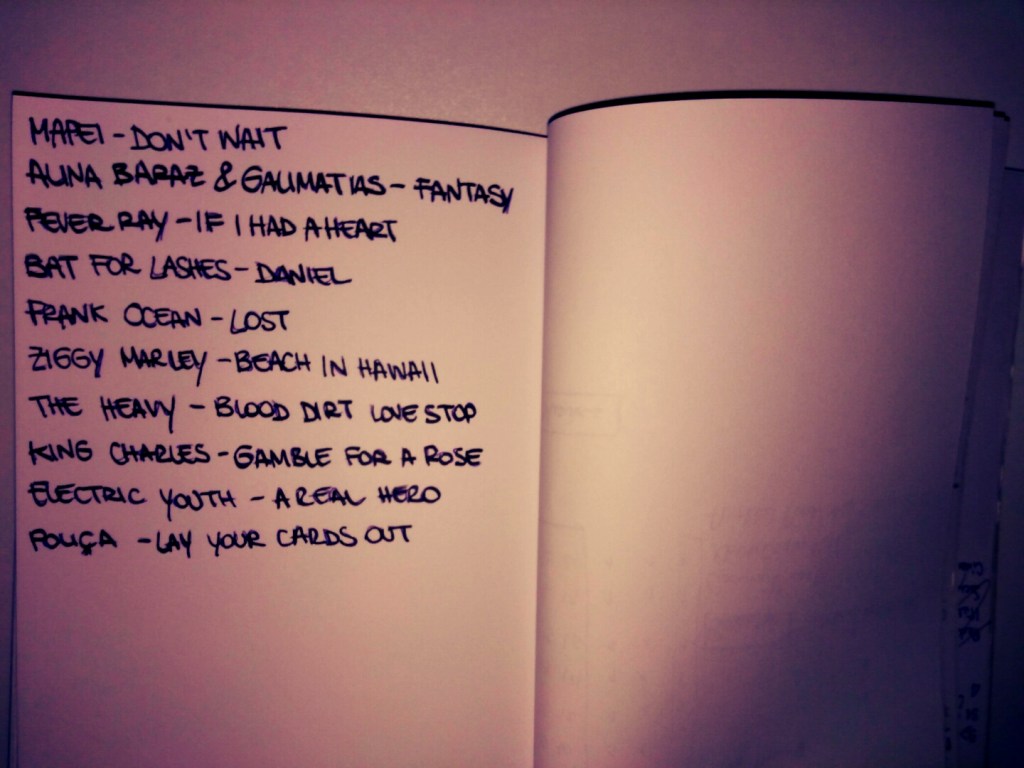 MAPEI - DON'T WAIT
ALINA BARAZ & GALIMATIAS - FANTASY
FEVER RAY - IF I HAD A HEART
BAT FOR LASHES - DANIEL
FRANK OCEAN - LOST
ZIGGY MARLEY - BEACH IN HAWAII
THE HEAVY - BLOOD DIRT LOVE STOP
KING CHARLES - GAMBLE FOR A ROSE
ELECTRIC YOUTH - A REAL HERO
POLIÇA - LAY YOUR CARDS OUT